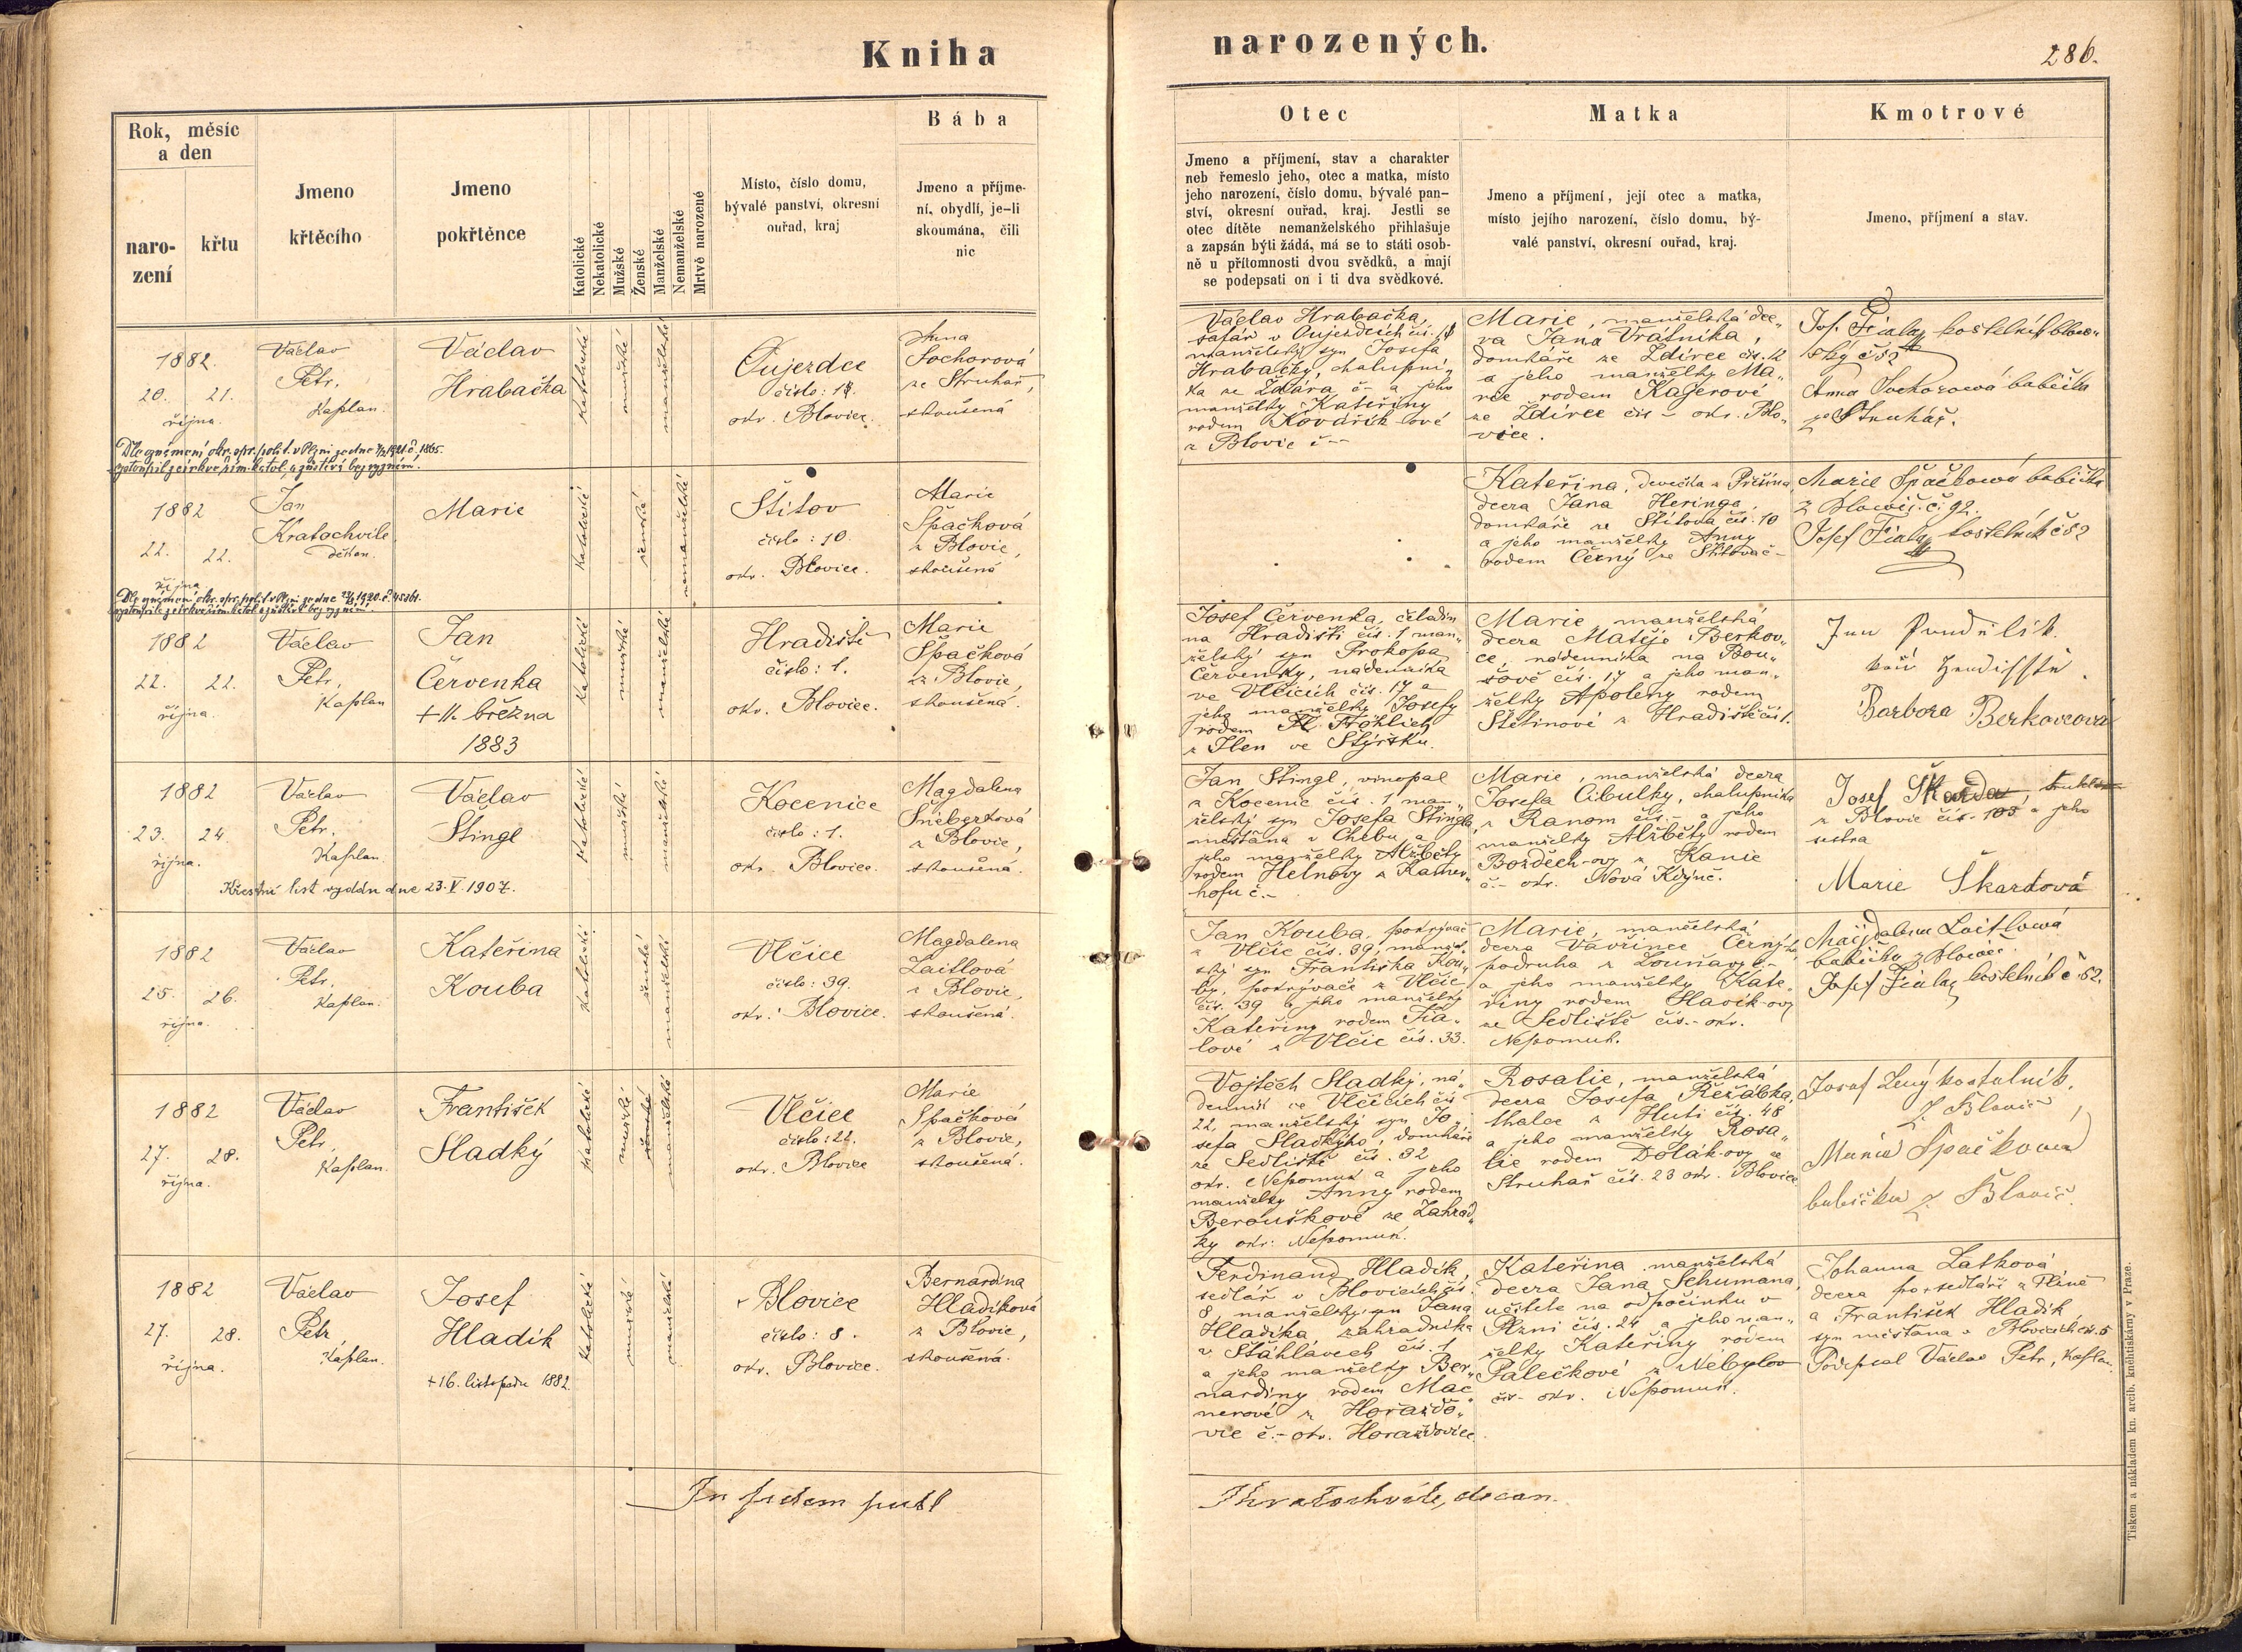 Kniha
narozených.
286.
Rok, měsíc
a den
naro-
zení
křtu
Jmeno
křtěcího
Jmeno
pokřtěnce
Katolické
Nekatolické
Mužské
Ženské
Manželské
Nemanželské
Mrtvě narozené
Místo, číslo domu,
bývalé panství, okresní
ouřad, kraj
Bába
Jmeno a příjme-
ní, obydlí, je-li
skoumána, čili
nic
Otec
Jmeno a příjmení, stav a charakter
neb řemeslo jeho, otec a matka, místo
jeho narození, číslo domu, bývalé pan-
ství, okresní ouřad, kraj. Jestli se
otec dítěte nemanželského přihlašuje
a zapsán býti žádá, má se to státi osob-
ně u přítomnosti dvou svědků, a mají
se podepsati on i ti dva svědkové.
Matka
Jmeno a příjmení, její otec a matka,
místo jejího narození, číslo domu, bý-
valé panství, okresní ouřad, kraj.
Kmotrové
Jmeno, příjmení a stav.
1882.
20. 21.
října.
Václav
Petr,
Kaplan.
Václav
Hrabačka
katolické
mužské
manželské
Oujezdce
číslo: 18.
okr. Blovice.
Anna
Sochorová
ze Struhař,
skoušená
Václav Hrabačka,
šafář v Oujezdcích čís. 18
manželský syn Josefa
Hrabačky, chalupní„
ka ze Ždára č– a jeho
manželky Kateřiny
rodem Kovářík-ové
z Blovic č–
Marie, manželská dce„
ra Jana Vrátníka,
domkáře ze Ždírce čís. 12
a jeho manželky Ma„
rie rodem Kagerové
ze Ždírce čís – okr. Blo„
vice.
Jos. Fiala kostelník blovi„
ský č 52
Anna Sochorová babička
ze Struhař.
1882
22. 22.
října
Jan
Kratochvíle
děkan.
Marie
katolické
ženské
nemanželské
Štítov
číslo: 10.
okr. Blovice.
Marie
Špačková
z Blovic,
skoušená
Kateřina, děvečka z Přešína
dcera Jana Heringa,
domkáře ze Štítova čís. 10
a jeho manželky Anny
rodem Černý ze Štítova č–
Marie Špačková babička
z Blovic č. 92.
Josef Fiala kostelník č 52
1882
22. 22.
října.
Václav
Petr,
Kaplan
Jan
Červenka
+ 11. března
1883
katolické
mužské
manželské
Hradiště
číslo: 1.
okr. Blovice.
Marie
Špačková
z Blovic,
skoušená.
Josef Červenka, čeledín
na Hradišti čís. 1 man„
želský syn Prokopa
Červenky, nádenníka
ve Vlčicích čís. 17 a
jeho manželky Josefy
rodem Fröhlich
z Ilen ve Štýrsku.
Marie manželská
dcera Matěje Berkov„
ce, nádenníka na Bou„
sově čís. 17 a jeho man„
želky Apoleny rodem
Štětinové z Hradiště čís 1.
Barbora Berkovcová
1882
23. 24.
října.
Václav
Petr.
Kaplan.
Václav
Stingl
Křestní list vydán dne 23. V. 1907.
katolické
mužské
manželské
Kocenice
číslo: 1.
okr. Blovice.
Magdalena
Šnebertová
z Blovic,
skoušená.
Jan Stingl, vinopal
z Kocenic čís. 1 man„
želský syn Josefa Stingla,
měšťana v Chebu a
jeho manželky Alžběty
rodem Helnovy z Kamer„
hofu č.–
Marie, manželská dcera
Josefa Cibulky, chalupníka
z Ranom čís.– a jeho
manželky Alžběty rodem
Bozděch-ovy z Kanic
č.– okr. Nová Kdyně.
Josef Škarda
z Blovic čís. 105 a jeho
sestra
Marie Škardová
1882
25. 26.
října.
Václav
Petr.
Kaplan.
Kateřina
Kouba
katolické
ženské
manželské
Vlčice
číslo: 39.
okr. Blovice.
Magdalena
Laitlová
z Blovic,
skoušená.
Jan Kouba, pokrývač
z Vlčic čís. 39, manžel„
ský syn Františka Kou„
by, pokrývače z Vlčic
čís. 39 a jeho manželky
Kateřiny rodem Fia„
lové z Vlčic čís. 33.
Marie, manželská
dcera Vavřince Černýho
podruha z Louňavy č–
a jeho manželky Kate„
řiny rodem Slavík-ovy
ze Sedliště čís.– okr.
Nepomuk.
Magdalena Loitlová
babička z Blovic
Josef Fiala kostelník č 52.
1882
27. 28.
října.
Václav
Petr,
Kaplan.
František
Sladký
katolické
mužské
ženské
manželské
Vlčice
číslo: 22.
okr. Blovice
Marie
Špačková
z Blovic,
skoušená.
Vojtěch Sladký, ná„
denník ve Vlčicích čís
22, manželský syn Jo„
sefa Sladkýho, domkáře
ze Sedliště čís. 32
okr. Nepomuk a jeho
manželky Anny rodem
Berouškové ze Zahrád„
ky okr. Nepomuk.
Rosalie, manželská
dcera Josefa Řežábka,
tkalce z Huti čís. 48
a jeho manželky Rosa„
lie rodem Dolák-ovy ze
Struhař čís. 23 okr. Blovice
Josef Lený kostelník.
z Blovic
Marie Špačková
babička z Blovic.
1882
27. 28.
října.
Václav
Petr,
Kaplan.
Josef
Hladík
+ 16. listopadu 1882.
katolické
mužské
manželské
Blovice
číslo: 8.
okr. Blovice.
Bernardina
Hladíková
z Blovic,
skoušená.
Ferdinand Hladík,
sedlář v Blovicích čís.
8 manželský syn Jana
Hladíka, zahradníka
v Šťáhlavech čís. 1
a jeho manželky Ber„
nardiny rodem Mac
nerové z Horažďo„
vic č.– okr. Horažďovice.
Kateřina manželská
dcera Jana Schumana,
učitele na odpočinku v
Plzni čís. 24 a jeho man„
želky Kateřiny rodem
Palečkové z Nebylov
čís– okr. Nepomuk.
Johanna Latková
dcera po sedláři z Plané
a František Hladík
syn měšťana v Blovicích čís. 5
Podepsal Václav Petr, Kaplan.
In fidem publ
Kratochvíle, decan.
Tiskem a nákladem kn. arcib. knihtiskárny v Praze.